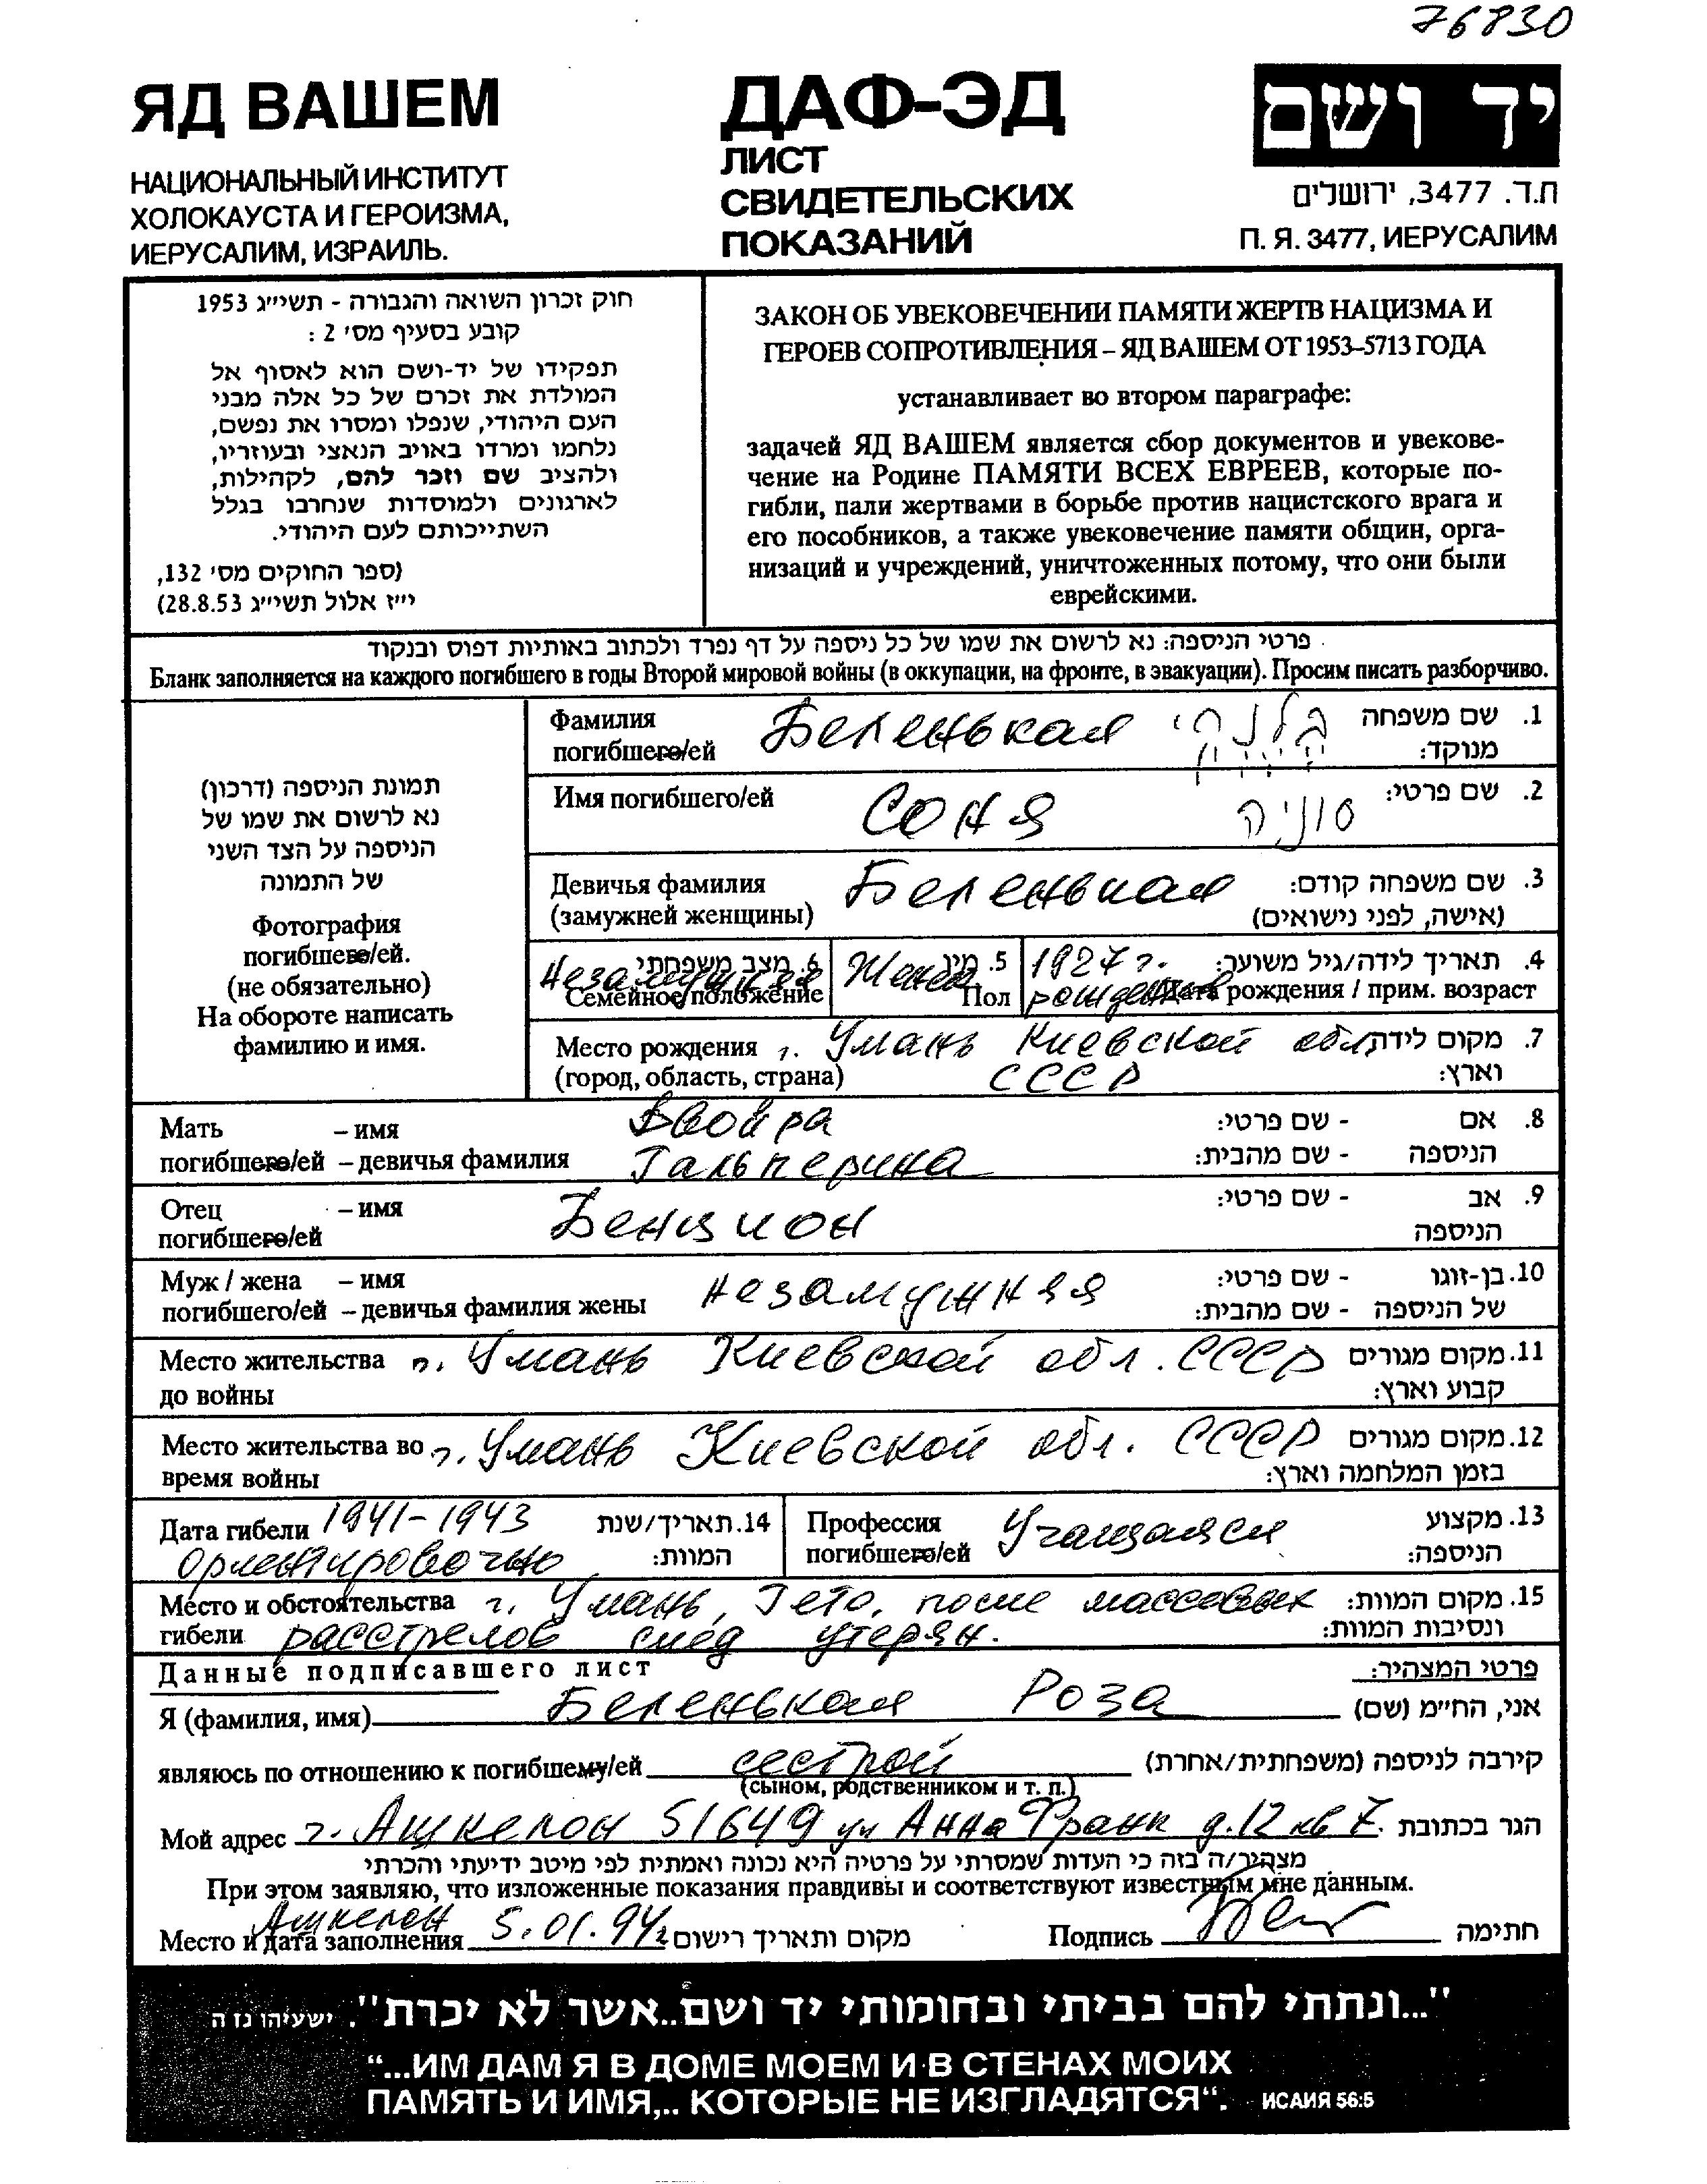 76830
ЯД ВАШЕМ
НАЦИОНАЛЬНЫЙ ИНСТИТУТ
ХОЛОКАУСТА И ГЕРОИЗМА,
ИЕРУСАЛИМ, ИЗРАИЛЬ.
ДАФ-ЭД
ЛИСТ
СВИДЕТЕЛЬСКИХ
ПОКАЗАНИЙ
יד ושם
ת.ד. 3477, ירושלים
П. Я. 3477, ИЕРУСАЛИМ
חוק זכרון השואה והגבורה - תשי״ג 1953
קובע בסעיף מס׳ 2 :
תפקידו של יד-ושם הוא לאסוף אל
המולדת את זכרם של כל אלה מבני
העם היהודי, שנפלו ומסרו את נפשם,
נלחמו ומרדו באויב הנאצי ובעוזריו,
ולהציב שם וזכר להם, לקהילות,
לארגונים ולמוסדות שנחרבו בגלל
השתייכותם לעם היהודי.
(ספר החוקים מס׳ 132,
י״ז אלול תשי״ג 28.8.53)
ЗАКОН ОБ УВЕКОВЕЧЕНИИ ПАМЯТИ ЖЕРТВ НАЦИЗМА И
ГЕРОЕВ СОПРОТИВЛЕНИЯ – ЯД ВАШЕМ ОТ 1953–5713 ГОДА
устанавливает во втором параграфе:
задачей ЯД ВАШЕМ является сбор документов и увекове-
чение на Родине ПАМЯТИ ВСЕХ ЕВРЕЕВ, которые по-
гибли, пали жертвами в борьбе против нацистского врага и
его пособников, а также увековечение памяти общин, орга-
низаций и учреждений, уничтоженных потому, что они были
еврейскими.
פרטי הניספה: נא לרשום את שמו של כל ניספה על דף נפרד ולכתוב באותיות דפוס ובנקוד
Бланк заполняется на каждого погибшего в годы Второй мировой войны (в оккупации, на фронте, в эвакуации). Просим писать разборчиво.
תמונת הניספה (דרכון)
נא לרשום את שמו של
הניספה על הצד השני
של התמונה
Фотография
погибшего/ей.
(не обязательно)
На обороте написать
фамилию и имя.
Фамилия Беленькая 1. שם משפחה
погибшего/ей מנוקד:
Имя погибшего/ей Соня סוניה 2. שם פרטי:
Девичья фамилия Беленькая 3. שם משפחה קודם:
(замужней женщины) (אישה, לפני נישואים)
Незамужняя 6. מצב משפחתי Женск 5. מין 1927 г. 4. תאריך לידה/גיל משוער:
Семейное положение Пол рождения Дата рождения / прим. возраст
Место рождения г. Умань Киевской обл. 7. מקום לידה
(город, область, страна) СССР וארץ:
Мать – имя Двойра 8. אם - שם פרטי:
погибшего/ей – девичья фамилия Гальперина הניספה - שם מהבית:
Отец – имя Бенцион 9. אב - שם פרטי:
погибшего/ей הניספה
Муж / жена – имя незамужняя 10. בן-זוגו - שם פרטי:
погибшего/ей – девичья фамилия жены של הניספה - שם מהבית:
Место жительства г. Умань Киевской обл. СССР 11. מקום מגורים
до войны קבוע וארץ:
Место жительства во г. Умань Киевской обл. СССР 12. מקום מגורים
время войны בזמן המלחמה וארץ:
Дата гибели 1941-1943 14. תאריך/שנת
ориентировочно המוות:
Профессия Учащаяся 13. מקצוע
погибшего/ей הניספה:
Место и обстоятельства г. Умань, Гето, после массовых 15. מקום המוות:
гибели расстрелов след утерян. ונסיבות המוות:
Данные подписавшего лист פרטי המצהיר:
Я (фамилия, имя) Беленькая Роза אני, הח״מ (שם)
являюсь по отношению к погибшему/ей сестрой קירבה לניספה (משפחתית/אחרת)
(сыном, родственником и т. п.)
Мой адрес г. Ашкелон 51649 ул Анна Франк д. 12 кв 7. הגר בכתובת
מצהיר/ה בזה כי העדות שמסרתי על פרטיה היא נכונה ואמתית לפי מיטב ידיעתי והכרתי
При этом заявляю, что изложенные показания правдивы и соответствуют известным мне данным.
Ашкелон
Место и дата заполнения 5.01.94г מקום ותאריך רישום Подпись חתימה
"...ונתתי להם בביתי ובחומותי יד ושם..אשר לא יכרת". ישעיהו נז ה
“...ИМ ДАМ Я В ДОМЕ МОЕМ И В СТЕНАХ МОИХ
ПАМЯТЬ И ИМЯ,.. КОТОРЫЕ НЕ ИЗГЛАДЯТСЯ“. ИСАИЯ 56:5